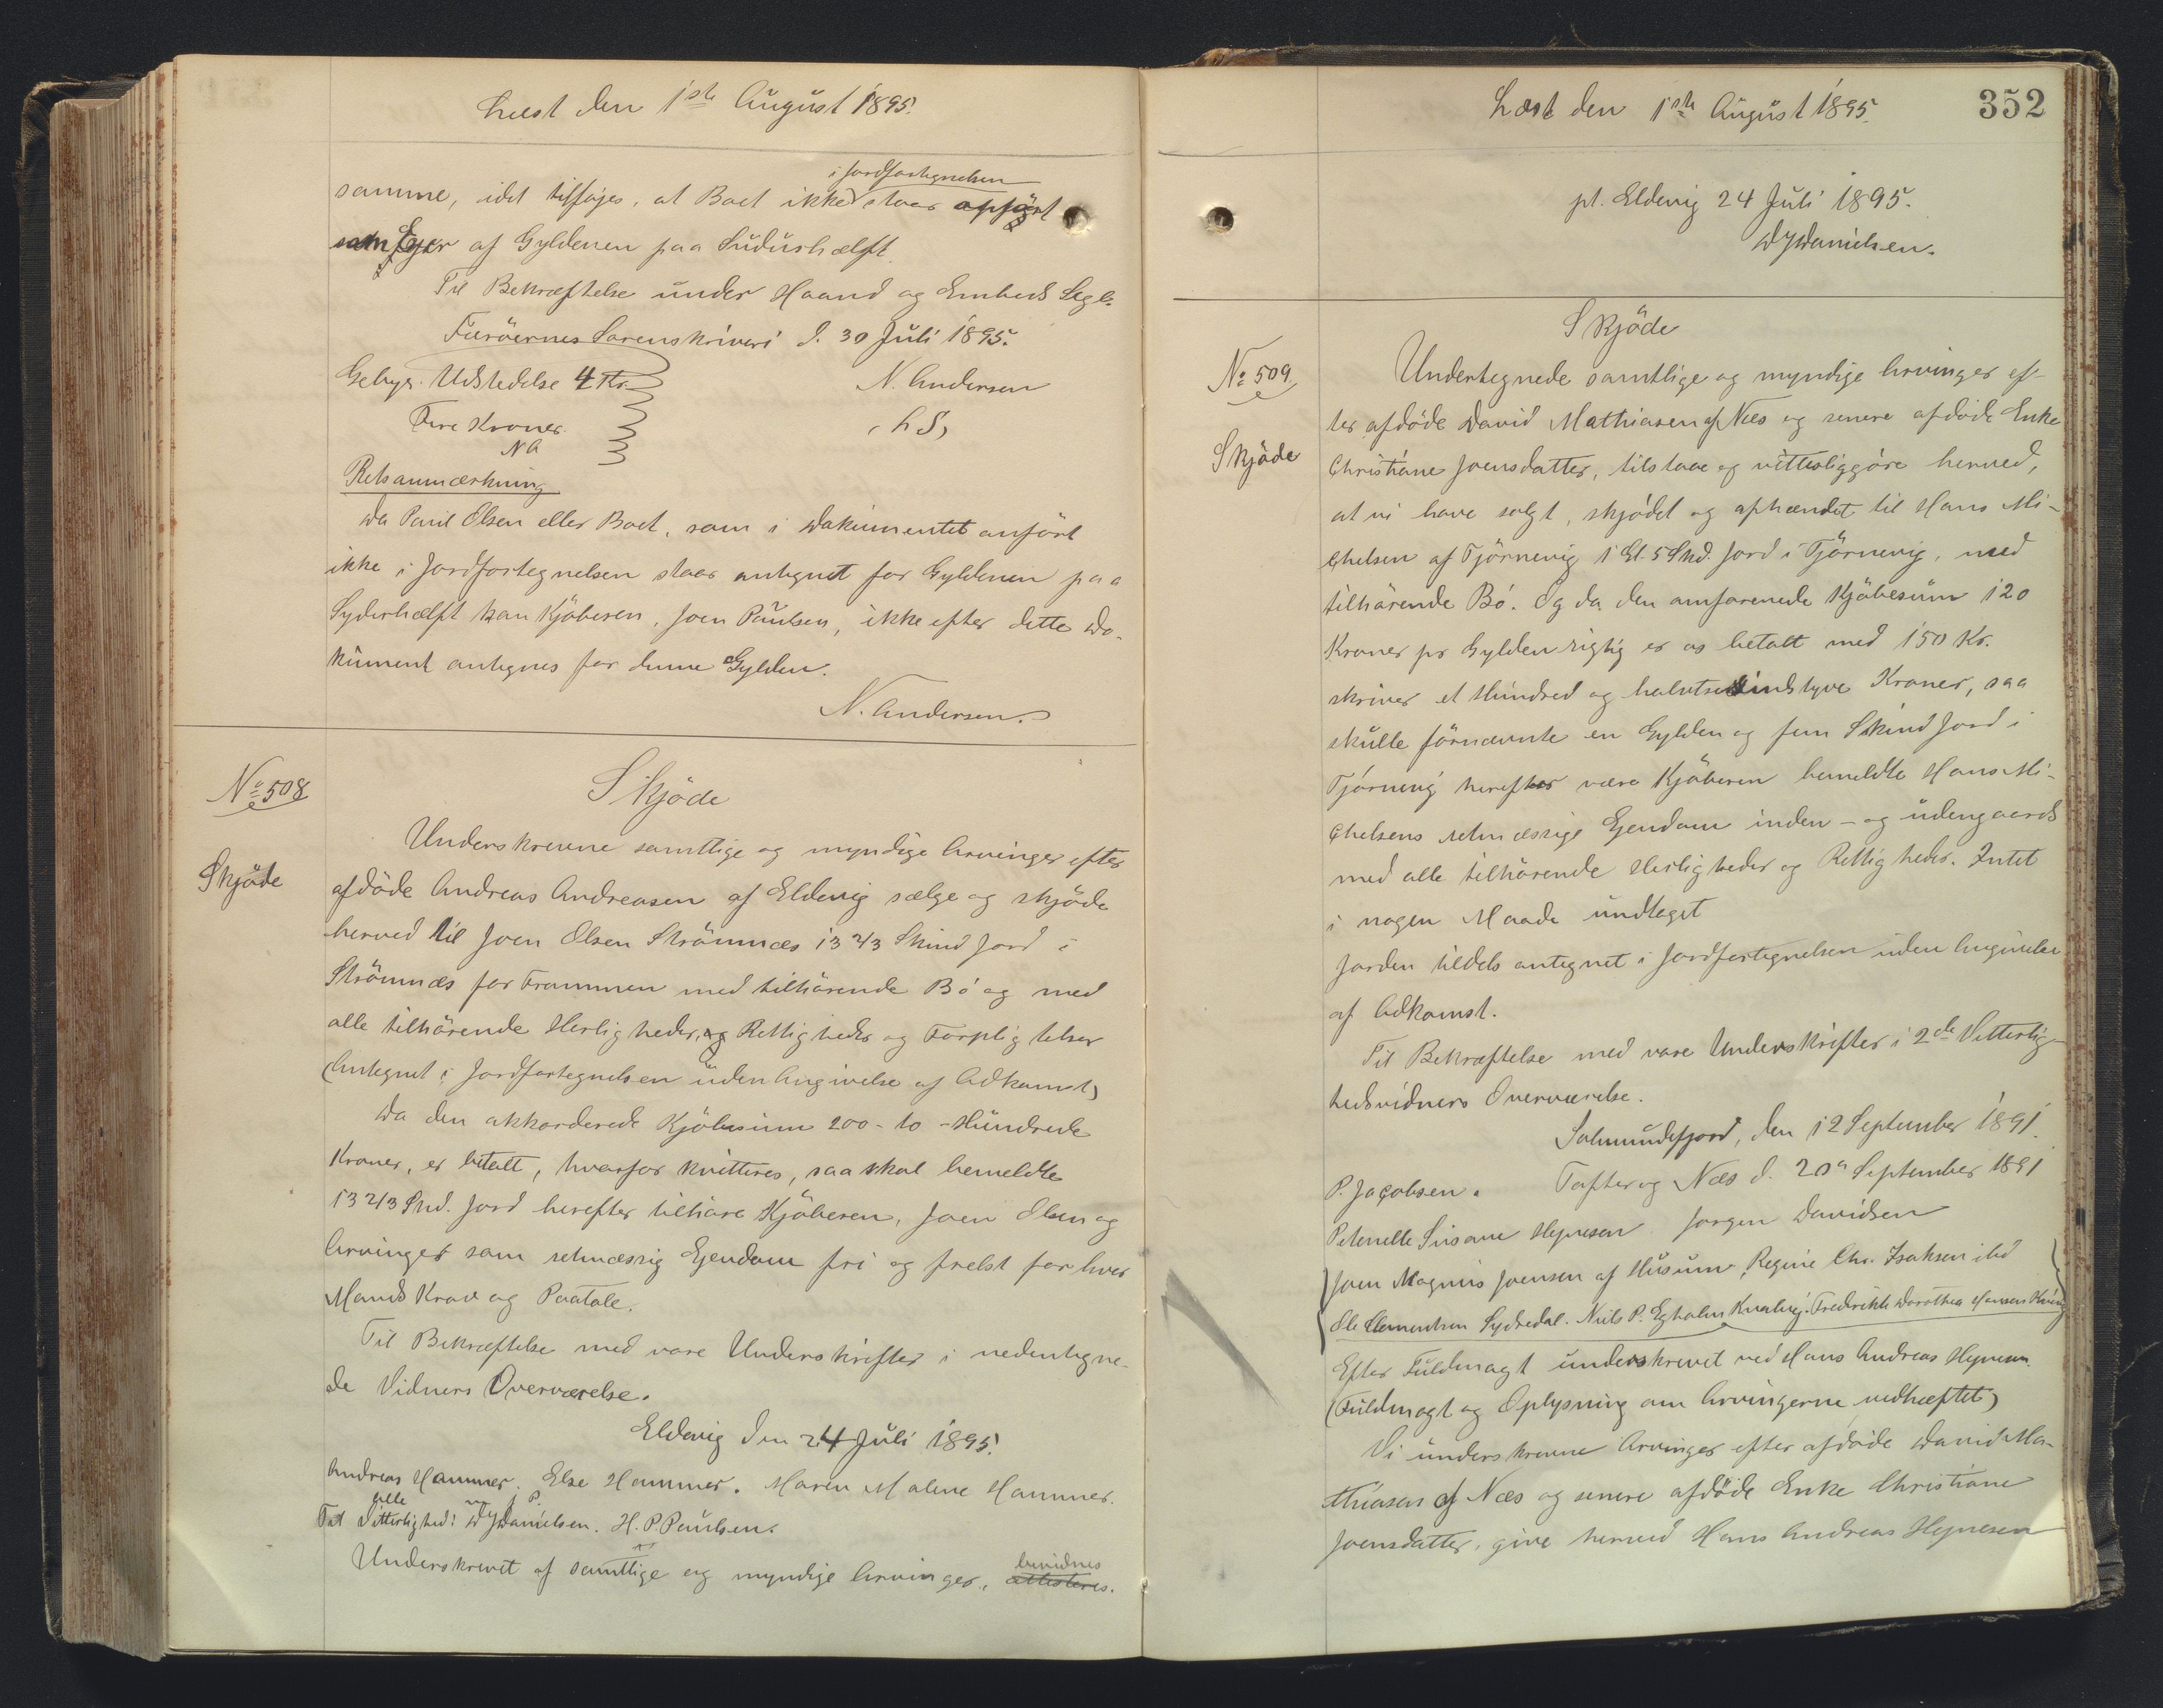 Læst den 1ste August 1895.
i Jordfortegnelsen
samme, idet tilføjes, at Boet ikke staar opført
som Ejer af Gyldenen paa Sudurhælft.
Til Bekræftelse under Haand og Embeds Segl.
Færöernes Sorenskriveri d. 30 Juli 1895.
Gebyr. Udstedelse 4 Kr.
N. Andersen
Fire Kroner.
(LS)
NA
Retsanmærkning
Da Poul Olsen eller Boet, som i Dokumentet anfört
ikke i Jordfortegnelsen staar antegnet for Gyldenen paa
Syderhælft kan Kjöberen, Joen Paulsen, ikke efter dette Do-
kument antegnes for denne Gylden.
N. Andersen.
No 508
Skjöde
Skjöde
Underskrevne samtlige og myndige Arvinger efter
afdöde Andreas Andreasen af Eldevig sælge og skjöde
herved til Joen Olsen Strömnæs 13 2/3 Skind Jord i
Strömnæs for Frammen med tilhörende Bö og med
alle tilhörende Herligheder, og Rettigheder og Forpligtelser
(Antegnet i Jordfortegnelsen uden Angivelse af Adkomst)
Da den akkorderede Kjöbesum 200 - to - Hundrede
Kroner, er betalt, hvorfor kvitteres, saa skal bemeldte
13 2/3 Skd. Jord herefter tilhöre Kjöberen, Joen Olsen og
Arvinger som retmæssig Ejendom fri og frelst for hver
Mands Krav og Paatale.
Til Bekræftelse med vore Underskrifter i nedentegne-
de Vidners Overværelse.
Eldevig den 24 Juli 1895.
Andreas Hammer. Else Hammer. Maren Malene Hammer.
alle m f P.
Til Vitterlighed: DJDanielsen. H. P. Paulsen.
Underskrevet af samtlige og myndige Arvinger, attesteres.
bevidnes
Læst den 1ste August 1895.
352
pt. Eldevig 24 Juli 1895.
DJDanielsen.
Skjöde
No 509
Skjöde
Undertegnede samtlige og myndige Arvinger ef-
ter afdöde David Mathiasen af Næs og senere afdöde Enke
Christiane Joensdatter, tilstaae og vitterliggöre herved,
at vi have solgt, skjödet og afhændet til Hans Mi-
chelsen af Tjörnevig 1 Gl. 5 Skd. Jord i Tjörnevig, med
tilhörende Bö. Og da den omforenede Kjöbesum 120
Kroner pr Gylden rigtig er os betalt med 150 Kr.
skriver et Hundred og halvtredsindstyve Kroner, saa
skulle fornævnte en Gylden og fem Skind Jord i
Tjörnevig herefter være Kjöberen bemeldte Hans Mi-
chelsens retmæssige Ejendom inden- og udengaards
med alle tilhörende Herligheder og Rettigheder. Intet
i nogen Maade undtaget
Jorden tildels antegnet i Jordfortegnelsen uden Angivelse
af Adkomst.
Til Bekræftelse med vore Underskrifter i 2de Vitterlig-
hedsvidners Overværelse.
Salmundefjord, den 12 September 1891.
P. Jacobsen. Tofter og Næs d. 20n September 1891
Petenelle Susanne Hejnesen Jorgen Davidsen
Joen Magnus Joensen af Husum. Regine Chr. Isaksen ibd
Ole Clementsen Sydredal. Niels P. Egholm Kvalvig. Fredrikke Dorothea Hansen Hvivig
Efter Fuldmagt underskrevet ved Hans Andreas Hejnesen.
(Fuldmagt og Oplysning om Arvingerne vedhæftet)
Vi underskrevne Arvinger efter afdöde David Ma-
thiasen af Næs og senere afdöde Enke Christiane
Joensdatter, give herved Hans Andreas Hejnesen